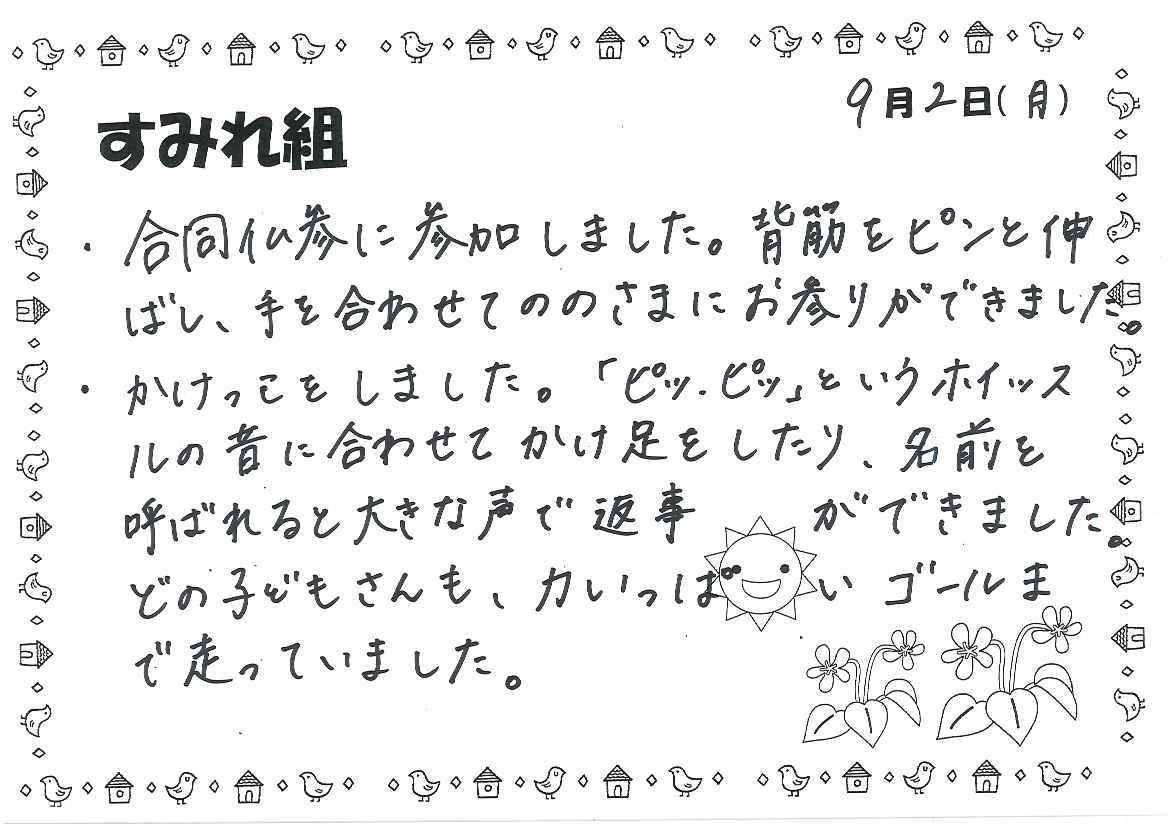 9月2日(月)
すみれ組
・合同仏参に参加しました。背筋をピンと伸
ばし、手を合わせてののさまにお参りができました。
・かけっこをしました。「ピッ.ピッ」というホイッス
ルの音に合わせてかけ足をしたり、名前を
呼ばれると大きな声で返事ができました。
どの子どもさんも、力いっぱいゴールま
で走っていました。